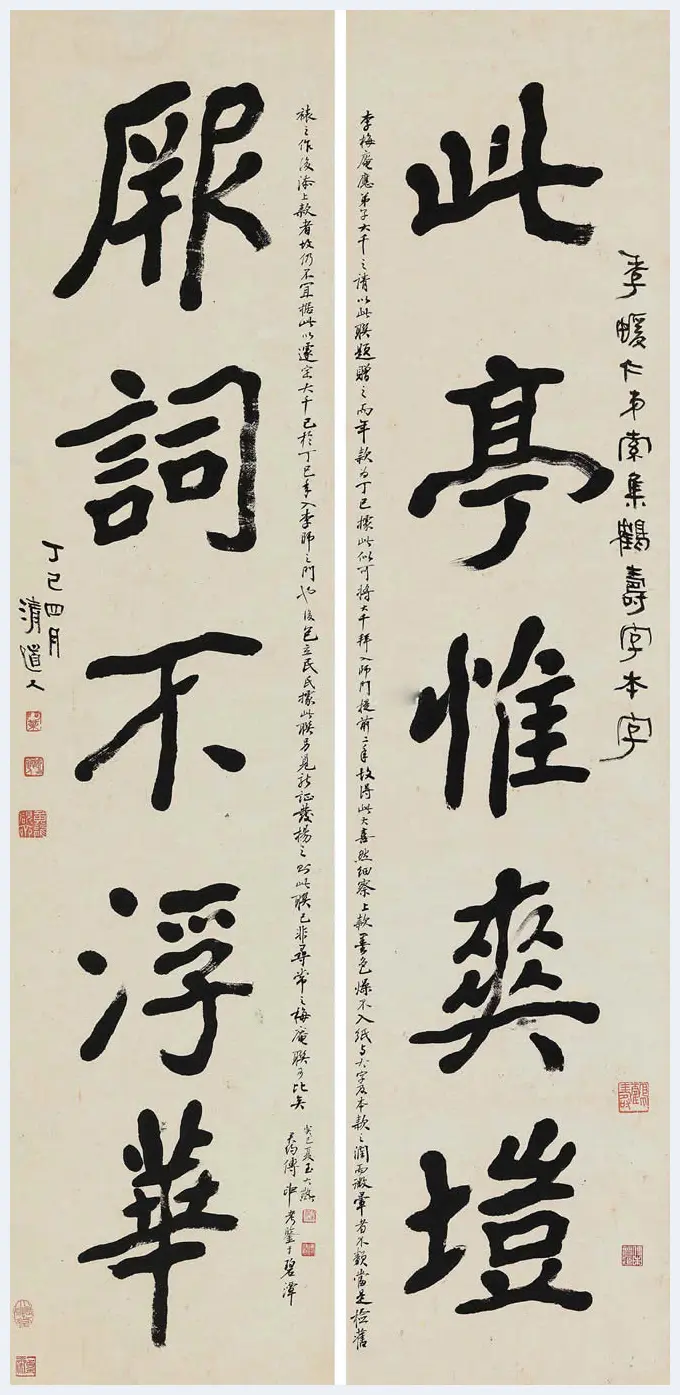 此亭惟爽塏
季暖仁弟索集鶴壽字本字
李梅庵應弟子大千之請以此聯題贈之丙年款為丁巳據此似可將大千拜入師門提前二年故得此大喜然細察上款墨色燥不入紙與大字及本款之潤而微暈者不類當是檢舊
裱之作後添上款者故仍不宜據此以遽定大千已於丁巳年入李師之門也後包立民氏據此聯另覓新證發揚之則此聯已非尋常之梅庵聯可比矣
癸巳夏玉大啟
天約傅申考鑒于碧潭
厥詞不浮華
丁巳四月
清道人